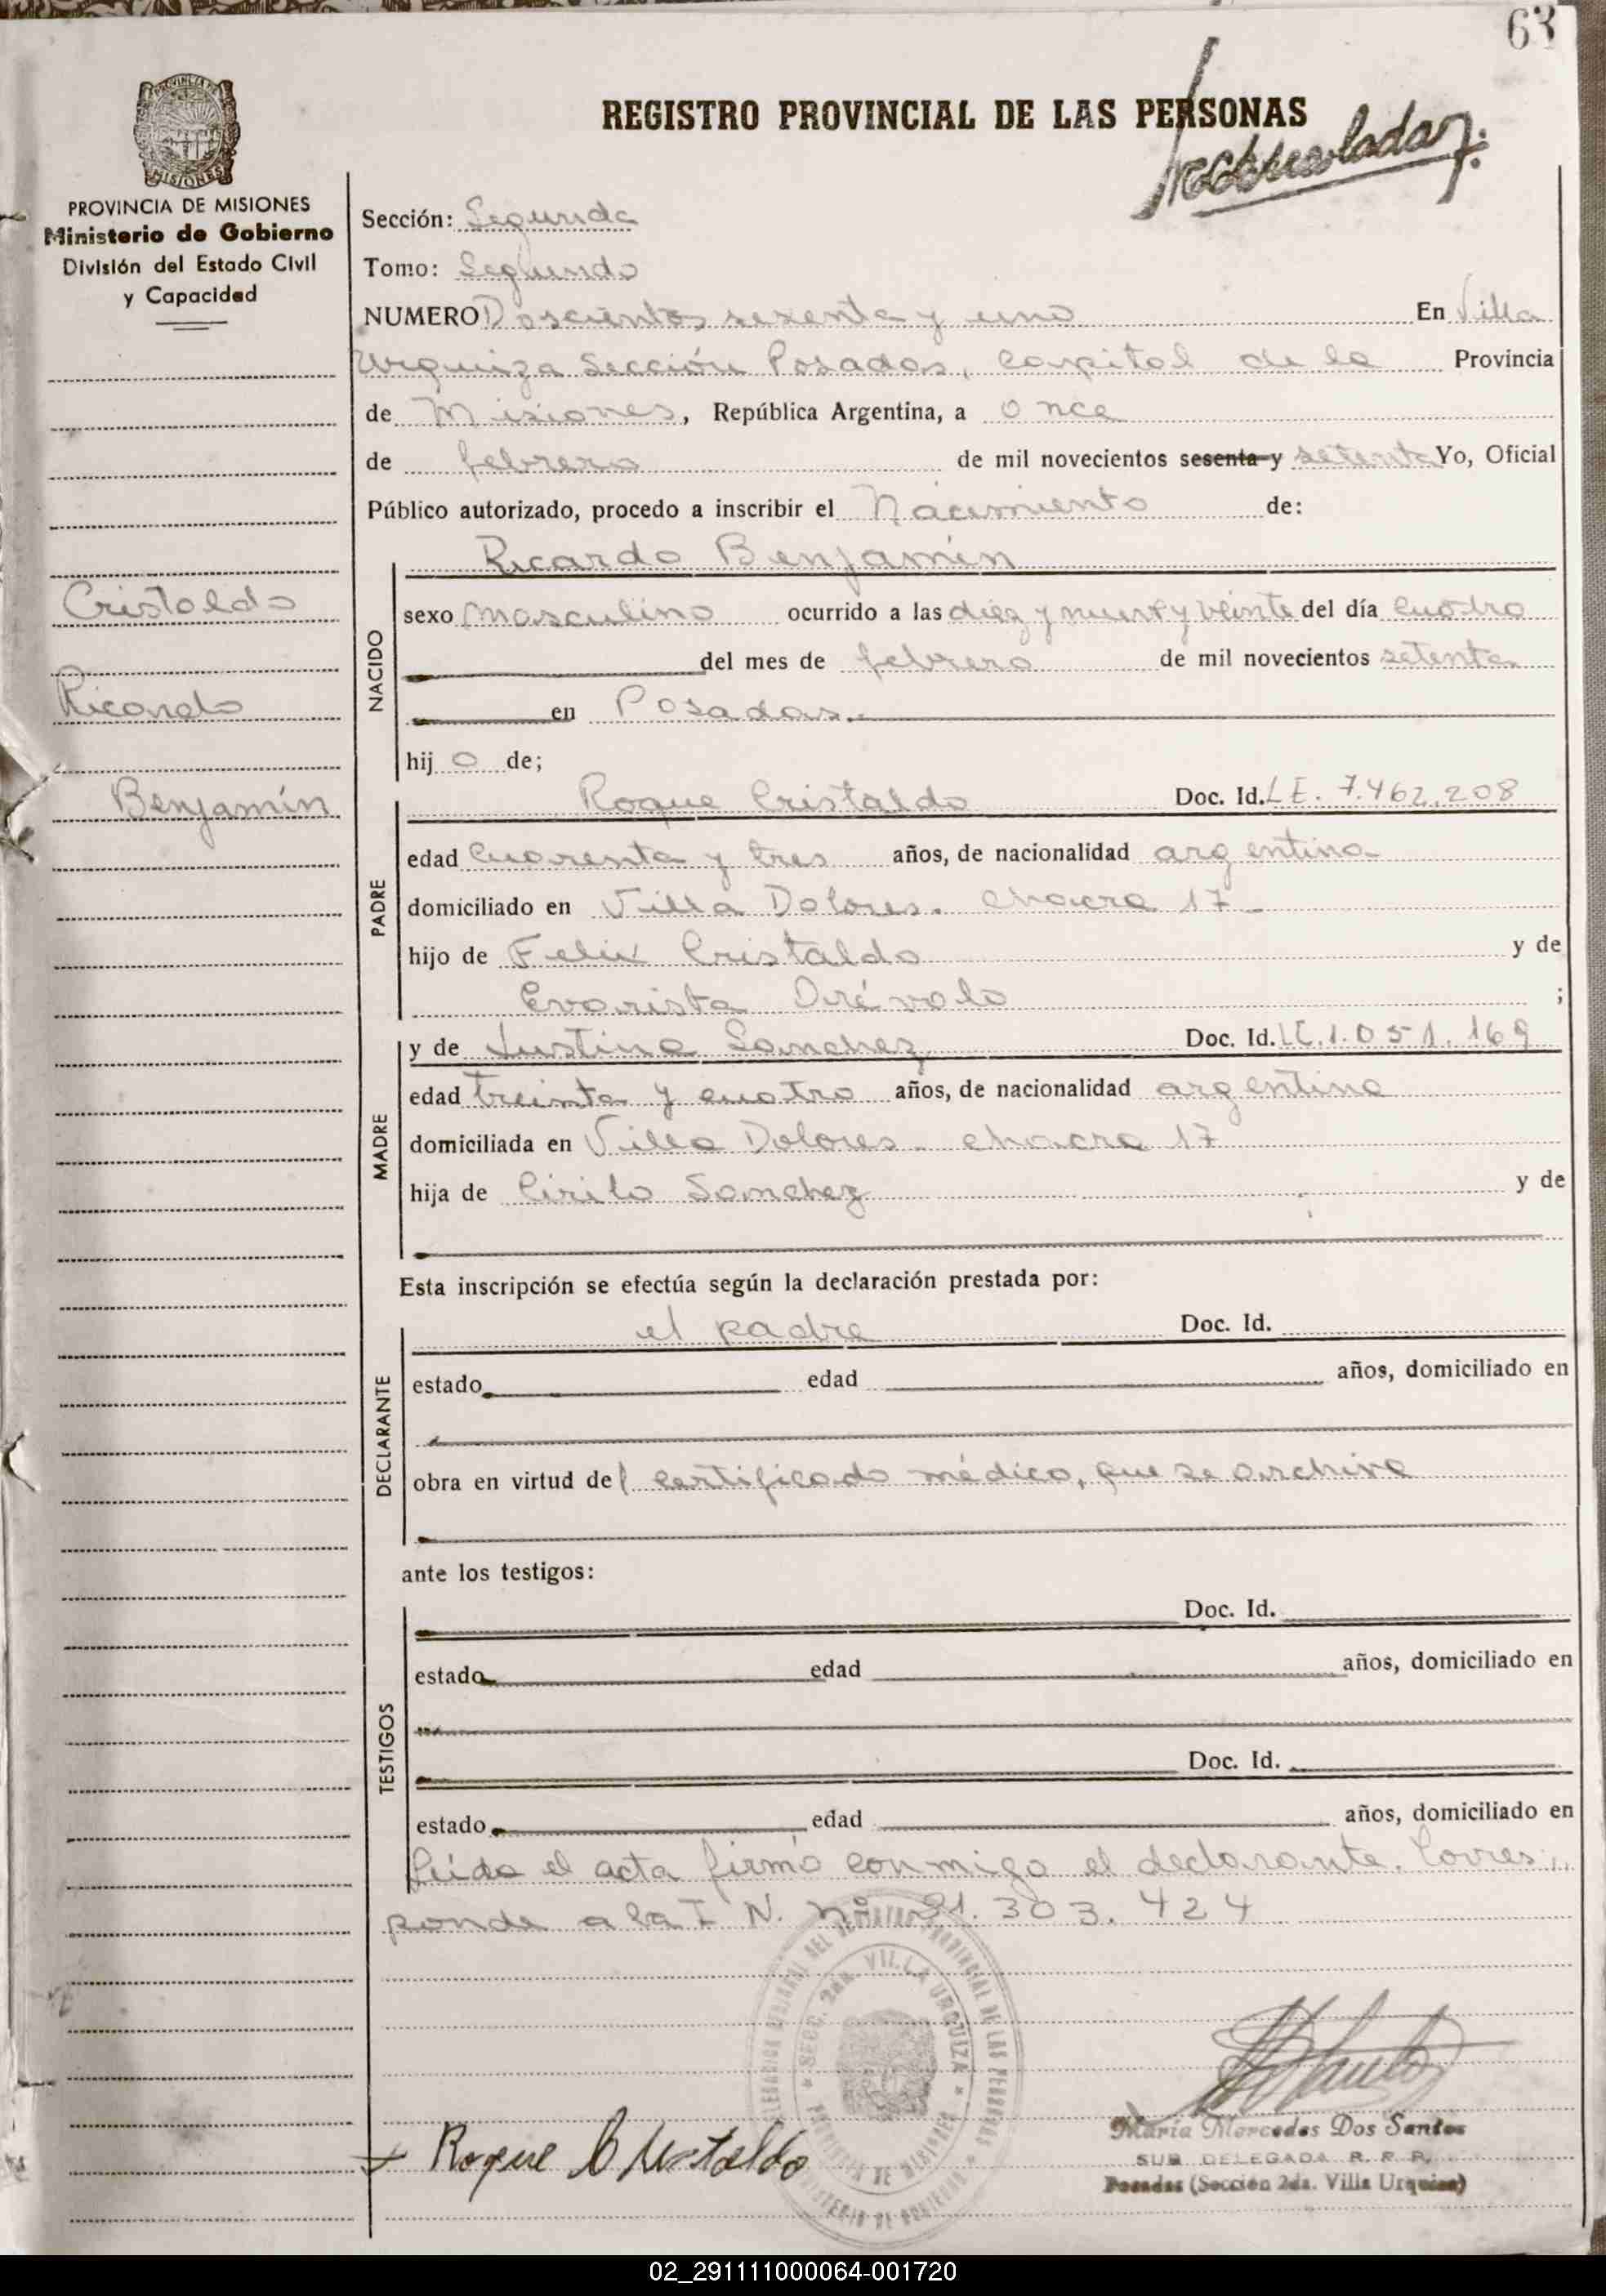 63
REGISTRO PROVINCIAL DE LAS PERSONAS
PROVINCIA DE MISIONES
Ministerio de Gobierno
División del Estado Civil
y Capacidad
Cristaldo
Ricardo
Benjamín
Sección: Segunda
Tomo: Segundo
NUMERO Doscientos sesenta y uno En Villa
Urquiza Sección Posadas, capital de la Provincia
de Misiones, República Argentina, a once
de febrero de mil novecientos sesenta y setenta Yo, Oficial
Público autorizado, procedo a inscribir el Nacimiento de:
Ricardo Benjamín
NACIDO
sexo masculino ocurrido a las diez y nueve y veinte del día cuatro
del mes de febrero de mil novecientos setenta
en Posadas.
hijo de;
PADRE
Roque Cristaldo Doc. Id. L E. 7.462.208
edad cuarenta y tres años, de nacionalidad argentina
domiciliado en Villa Dolores. chacra 17
hijo de Felix Cristaldo y de
Evarista ;
MADRE
y de Justina Sanchez Doc. Id. LC. 1.051.169
edad treinta y cuatro años, de nacionalidad argentina
domiciliada en Villa Dolores - chacra 17
hija de Cirilo Sanchez y de
Esta inscripción se efectúa según la declaración prestada por:
DECLARANTE
el padre Doc. Id.
estado edad años, domiciliado en
obra en virtud del certificado médico, que se archiva
ante los testigos:
TESTIGOS
Doc. Id.
estado edad años, domiciliado en
Doc. Id.
estado edad años, domiciliado en
Leída el acta firmó conmigo el declarante. Corres,,
ponde a la I N. Nº 21.303.424
SECC. 2da. VILLA URQUIZA
PROVINCIA DE MISIONES
Roque Cristaldo
María Mercedes Dos Santos
SUB DELEGADA R. P. P.
Posadas (Sección 2da. Villa Urquiza)
02_291111000064-001720